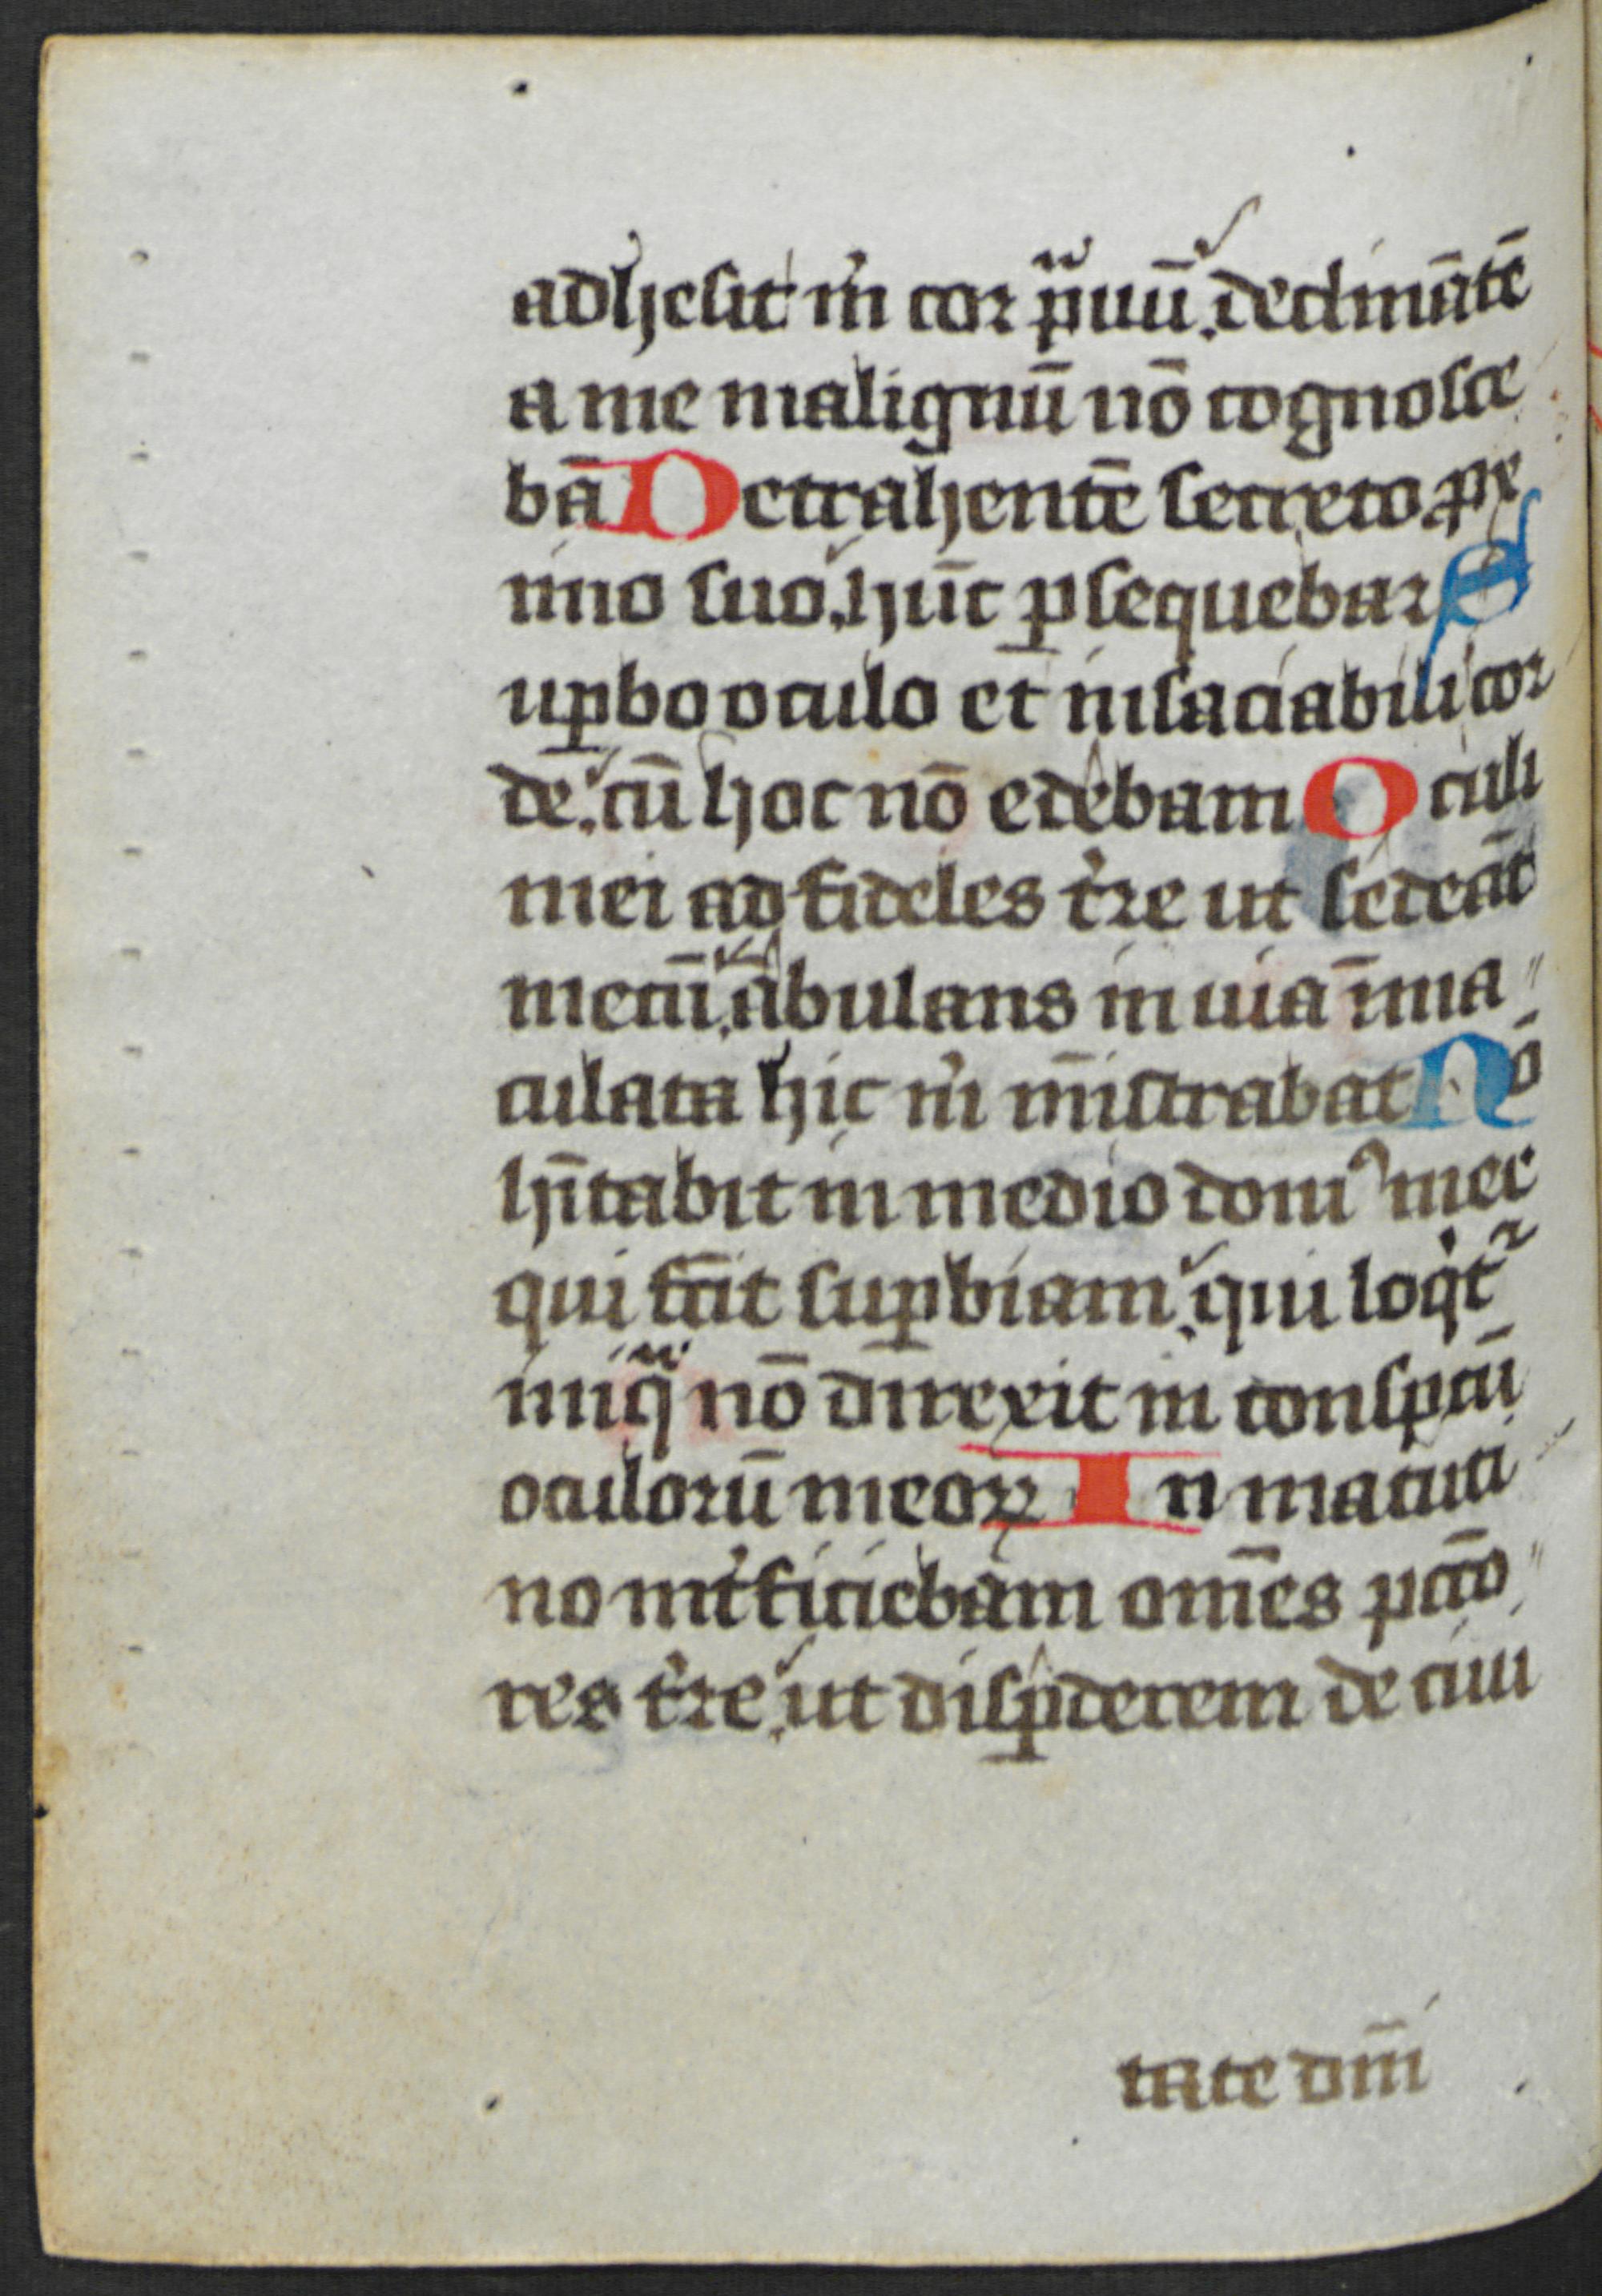 adhesit m̍ cor pͣuū. declinātē
a me malignū nō cognosce
bā Detrahentē secreto ꝓxi
mo suo. hūc ꝑsequebar S
uꝑbo oculo et insaciabili cor
de. cū hoc nō edebam Oculi
mei ad fideles t̍re ut sedeāt
mecū. ābulans in uia īma〃
culata hic m̍ mīstrabat Nō
hītabit in medio domꝰ mee
qui fac̄it suꝑbiam. qui loqͥtᷣ
iniqͣ nō direxit in conspcū
oculorū meoꝝ In matuti
no int̍ficiebam om̄es pcc̄o〃
res t̍re. ut disꝑderem de ciui
tate dnī